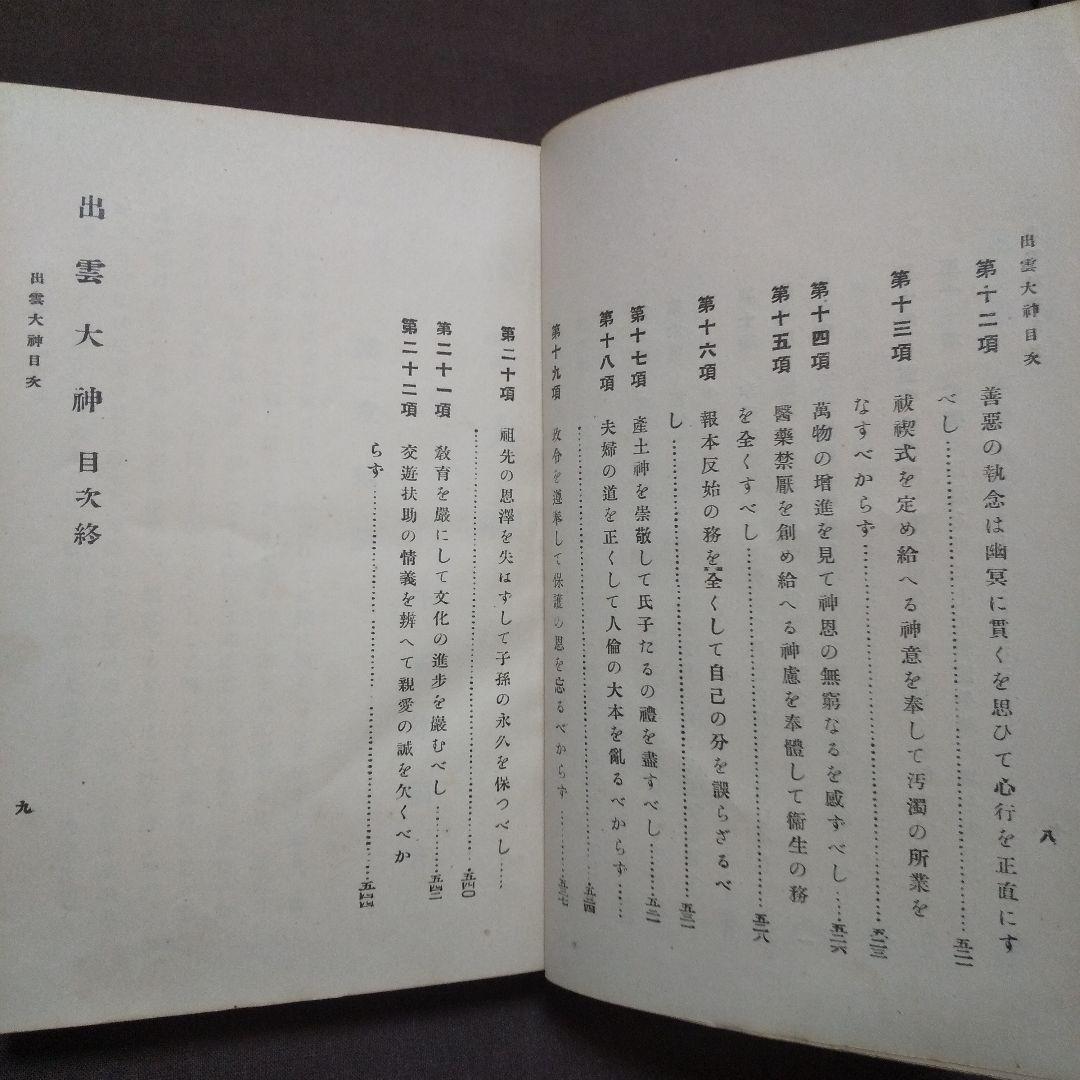 出雲大神目次
八
第十二項 善惡の執念は幽冥に貫くを思ひて心行を正直にす
べし……五二一
第十三項 祓禊式を定め給へる神意を奉して汚濁の所業を
なすべからず……五二三
第十四項 萬物の增進を見て神恩の無窮なるを感ずべし……五二六
第十五項 醫藥禁厭を創め給へる神慮を奉體して衞生の務
を全くすべし……五二八
第十六項 報本反始の務を全くして自己の分を誤らざるべ
し……五三一
第十七項 產土神を崇敬して氏子たるの禮を盡すべし……五三二
第十八項 夫婦の道を正くして人倫の大本を亂るべからず……
……五三四
第十九項 政令を遵奉して保護の恩を忘るべからず……五三七
第二十項 祖先の恩澤を失はすして子孫の永久を保つべし……
……五四〇
第二十一項 敎育を嚴にして文化の進步を嚴むべし……五四二
第二十二項 交遊扶助の情義を辨へて親愛の誠を欠くべか
らず……五四四
出雲大神目次終
出雲大神目次
九